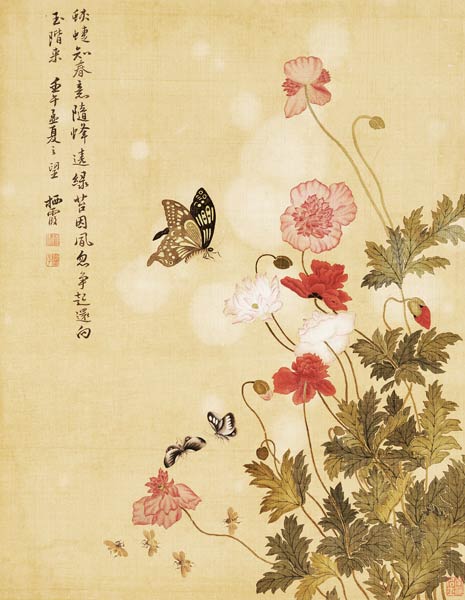 蛱蝶知春意隨蜂遠綠苔因風忽爭起還向
玉階來 壬午孟夏之望 栖霞